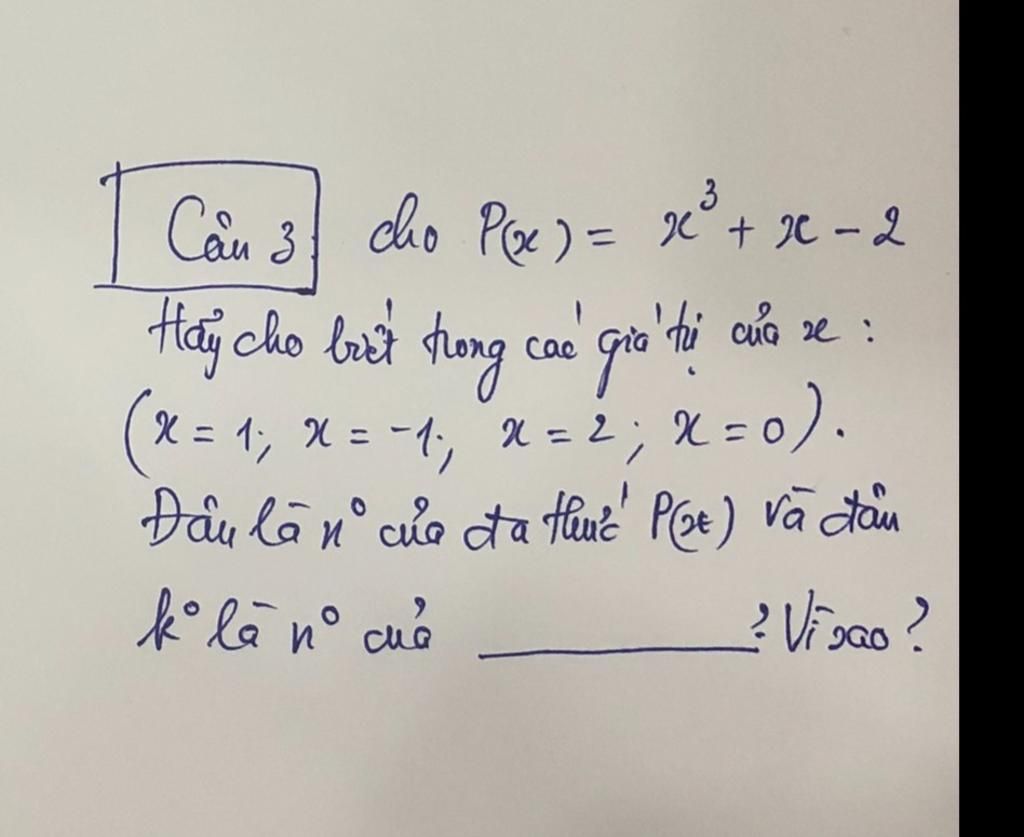 Câu 3 cho P(x) = x³ + x - 2
Hãy cho biết trong các giá trị của x :
(x = 1; x = -1; x = 2; x = 0).
Đâu là n° của đa thức P(x) và đâu
k° là n° của __________? Vì sao?